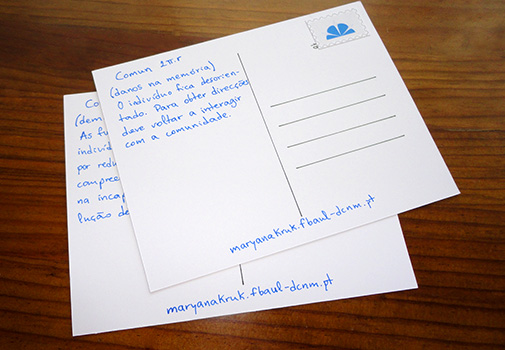 Comun 2π.r
(danos na memória)
O indivíduo fica desorien-
tado. Para obter direcções
deve voltar a interagir
com a comunidade.
maryanakruk.fbaul-dcnm.pt
Co
(dem
As fu
indivíd
por redu
compree
na incap
lução de
maryanakruk.fbaul-dcnm.pt